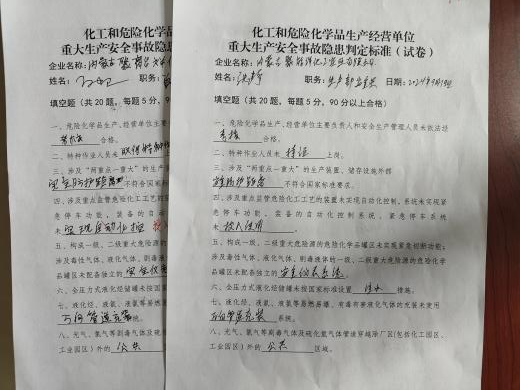 化工和危险化学品生产经营单位
重大生产安全事故隐患判定标准（试卷）
企业名称：内蒙古
姓名： 职务：生产部 日期：2024年
填空题（共 20 题，每题 5 分，90 分以上合格）
一、危险化学品生产、经营单位主要负责人和安全生产管理人员未依法经
考核 合格。
二、特种作业人员未 持证 上岗。
三、涉及“两重点一重大”的生产装置、储存设施外部
安全防护距离 不符合国家标准要求。
四、涉及重点监管危险化工工艺的装置未实现自动化控制，系统未实现
紧急停车功能，装备的自动化控制系统、紧急停车系统
未 投入使用 。
五、构成一级、二级重大危险源的危险化学品罐区未实现紧急切断功能；
涉及毒性气体、液化气体、剧毒液体的一级、二级重大危险源的危险化学
品罐区未配备独立的 安全仪表系统 。
六、全压力式液化烃储罐未按国家标准设置 注水 措施。
七、液化烃、液氨、液氯等易燃易爆、有毒有害液化气体的充装未使用
万向管道充装 系统。
八、光气、氯气等剧毒气体及硫化氢气体管道穿越除厂区(包括化工园区、
工业园区）外的 公共 区域。
化工和危险化学品
重大生产安全事故隐患
企业名称：内蒙古
姓名： 职务：
填空题（共 20 题，每题 5 分，
一、危险化学品生产、经营单位主要
合格。
二、特种作业人员未
三、涉及“两重点一重大”的生产
安全防护距离 不符合国家标
四、涉及重点监管危险化工工艺的
急停车功能，装备的自动
未 实现自动化控
五、构成一级、二级重大危险源的
涉及毒性气体、液化气体、剧毒液
品罐区未配备独立的 安全仪
六、全压力式液化烃储罐未按国家
七、液化烃、液氨、液氯等易燃
万向管道充装
八、光气、氯气等剧毒气体及硫
工业园区）外的 公共